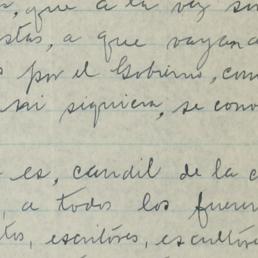 , que a la vez
stas, a que vayan
por el Gobierno, con
ni siquiera, se conv
es, candil de la c
, a todos los fueren
tos, escritóres, escultóre